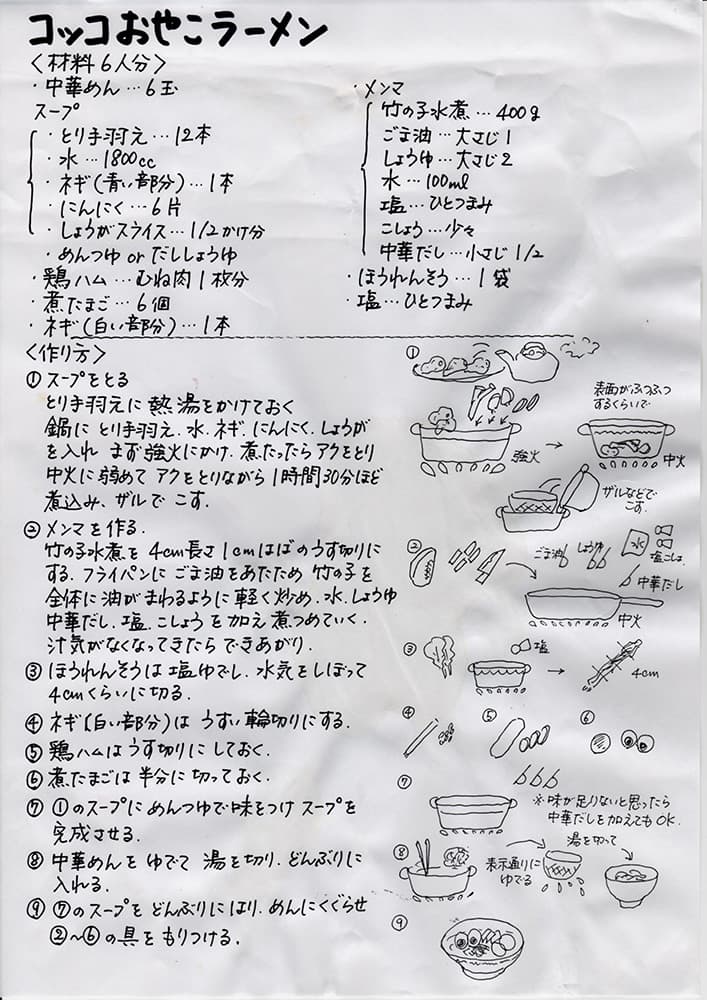 コッコおやこラーメン
〈材料6人分〉
・中華めん…6玉
スープ
・とり手羽元…12本
・水…1800cc
・ネギ(青い部分)…1本
・にんにく…6片
・しょうがスライス…1/2かけ分
・めんつゆ or だししょうゆ
・鶏ハム…むね肉1枚分
・煮たまご…6個
・ネギ(白い部分)…1本
・メンマ
竹の子水煮…400g
ごま油…大さじ1
しょうゆ…大さじ2
水…100ml
塩…ひとつまみ
こしょう…少々
中華だし…小さじ1/2
・ほうれんそう…1袋
・塩…ひとつまみ
〈作り方〉
① スープをとる
とり手羽元に熱湯をかけておく
鍋にとり手羽元.水.ネギ.にんにく.しょうが
を入れ まず強火にかけ.煮たったらアクをとり
中火に弱めてアクをとりながら1時間30分ほど
煮込み、ザルでこす.
② メンマを作る.
竹の子水煮を4cm長さ1cmはばのうす切りに
する.フライパンにごま油をあたため 竹の子を
全体に油がまわるように軽く炒め.水.しょうゆ
中華だし.塩.こしょうを加え煮つめていく.
汁気がなくなってきたらできあがり.
③ ほうれんそうは塩ゆでし.水気をしぼって
4cmくらいに切る.
④ ネギ(白い部分)はうすい輪切りにする.
⑤ 鶏ハムはうす切りにしておく.
⑥ 煮たまごは半分に切っておく.
⑦ ①のスープにめんつゆで味をつけスープを
完成させる.
⑧ 中華めんをゆでて湯を切り.どんぶりに
入れる.
⑨ ⑦のスープをどんぶりにはり.めんにくぐらせ
②〜⑥の具をもりつける.
①
強火
表面がふつふつ
するくらいで
中火
ザルなどで
こす.
②
ごま油
しょうゆ
水
塩こしょう
中華だし
中火
③
塩
4cm
④
⑤
⑥
⑦
※味が足りないと思ったら
中華だしを加えてもOK.
⑧
表示通りに
ゆでる
湯を切って
⑨